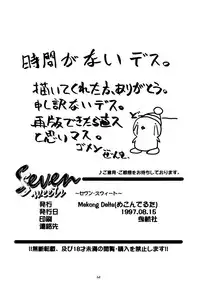 時間がないデス。
描いてくれた方、ありがとう。
申し訳ないデス。
再版できたら直ス
と思いマス。
ゴメン
ぜんき
♪ご意見・ご感想をお待ちしております。
Seven
Sweet
～セヴン・スウィート～
発行 Mekong Delta(めこんでるた)
発行日 1997.08.15
印刷 曳航社
連絡先
!!無断転載、及び18才未満の閲覧・購入を禁止します!!